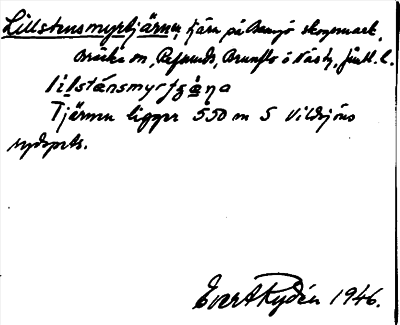 Lillstensmyrtjärnen, tjärn på Bensjö skogsmark,
Bräcke sn, Refsunds, Brunflo o Näs tg, Jämtl. l.
lilstǽnsmyrtȷ̣ä́ṇa
Tjärnen ligger 550 m S Vildsjöns
sydspets.
Evert Rydén 1946.